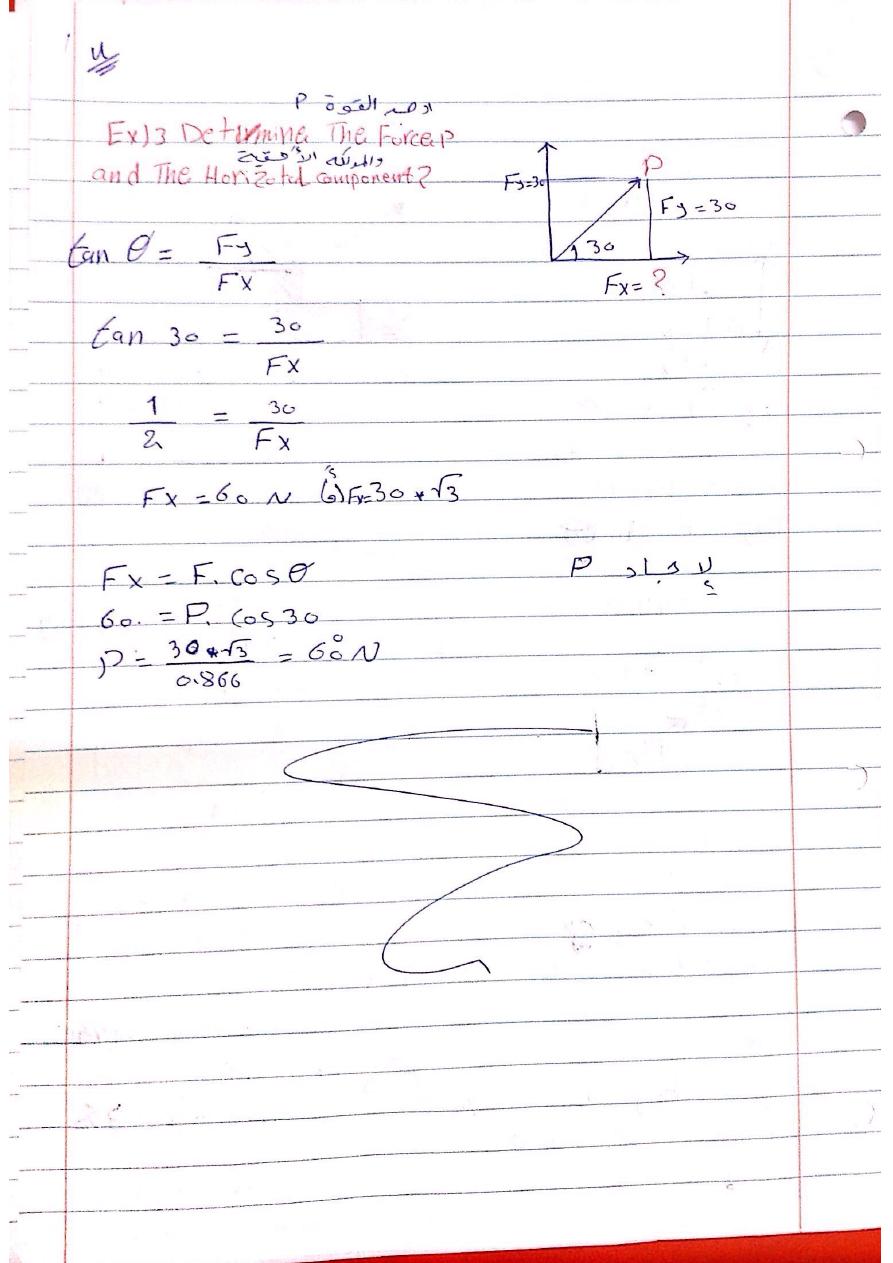 P اوجد القوة
Ex)3 Determine The Force P
والمركبة الأفقية
and The Horizotal Component?
Fy=30
P
Fy = 30
30
Fx= ?
tan θ = Fy / Fx
tan 30 = 30 / Fx
1 / 2 = 30 / Fx
Fx = 60 N Fx=30 * √3
لايجاد P
Fx = F. Cos θ
60. = P. Cos 30
P = 30 * √3 / 0.866 = 60 N